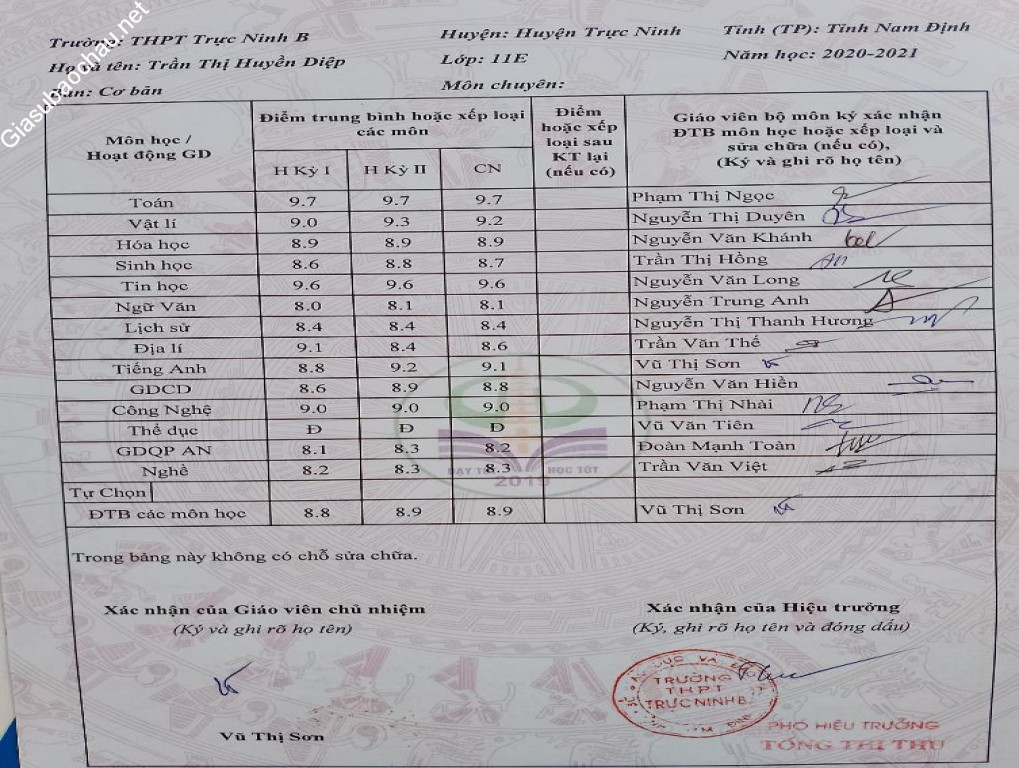 Giasubaochau.net
Trường: THPT Trực Ninh B Huyện: Huyện Trực Ninh Tỉnh (TP): Tỉnh Nam Định
Họ và tên: Trần Thị Huyền Diệp Lớp: 11E Năm học: 2020-2021
Ban: Cơ bản Môn chuyên:
Môn học / Hoạt động GD Điểm trung bình hoặc xếp loại các môn Điểm hoặc xếp loại sau KT lại (nếu có) Giáo viên bộ môn ký xác nhận ĐTB môn học hoặc xếp loại và sửa chữa (nếu có), (Ký và ghi rõ họ tên)
H Kỳ I H Kỳ II CN
Toán 9.7 9.7 9.7 Phạm Thị Ngọc
Vật lí 9.0 9.3 9.2 Nguyễn Thị Duyên
Hóa học 8.9 8.9 8.9 Nguyễn Văn Khánh
Sinh học 8.6 8.8 8.7 Trần Thị Hồng
Tin học 9.6 9.6 9.6 Nguyễn Văn Long
Ngữ Văn 8.0 8.1 8.1 Nguyễn Trung Anh
Lịch sử 8.4 8.4 8.4 Nguyễn Thị Thanh Hương
Địa lí 9.1 8.4 8.6 Trần Văn Thế
Tiếng Anh 8.8 9.2 9.1 Vũ Thị Sơn
GDCD 8.6 8.9 8.8 Nguyễn Văn Hiền
Công Nghệ 9.0 9.0 9.0 Phạm Thị Nhài
Thể dục Đ Đ Đ Vũ Văn Tiên
GDQP AN 8.1 8.3 8.2 Đoàn Mạnh Toàn
Nghề 8.2 8.3 8.3 Trần Văn Việt
HỌC TỐT
2019
Tự Chọn
ĐTB các môn học 8.8 8.9 8.9 Vũ Thị Sơn
Trong bảng này không có chỗ sửa chữa.
Xác nhận của Giáo viên chủ nhiệm Xác nhận của Hiệu trưởng
(Ký và ghi rõ họ tên) (Ký, ghi rõ họ tên và đóng dấu)
TRƯỜNG
THPT
TRỰC NINH B
PHÓ HIỆU TRƯỞNG
Vũ Thị Sơn
TỐNG THỊ THU